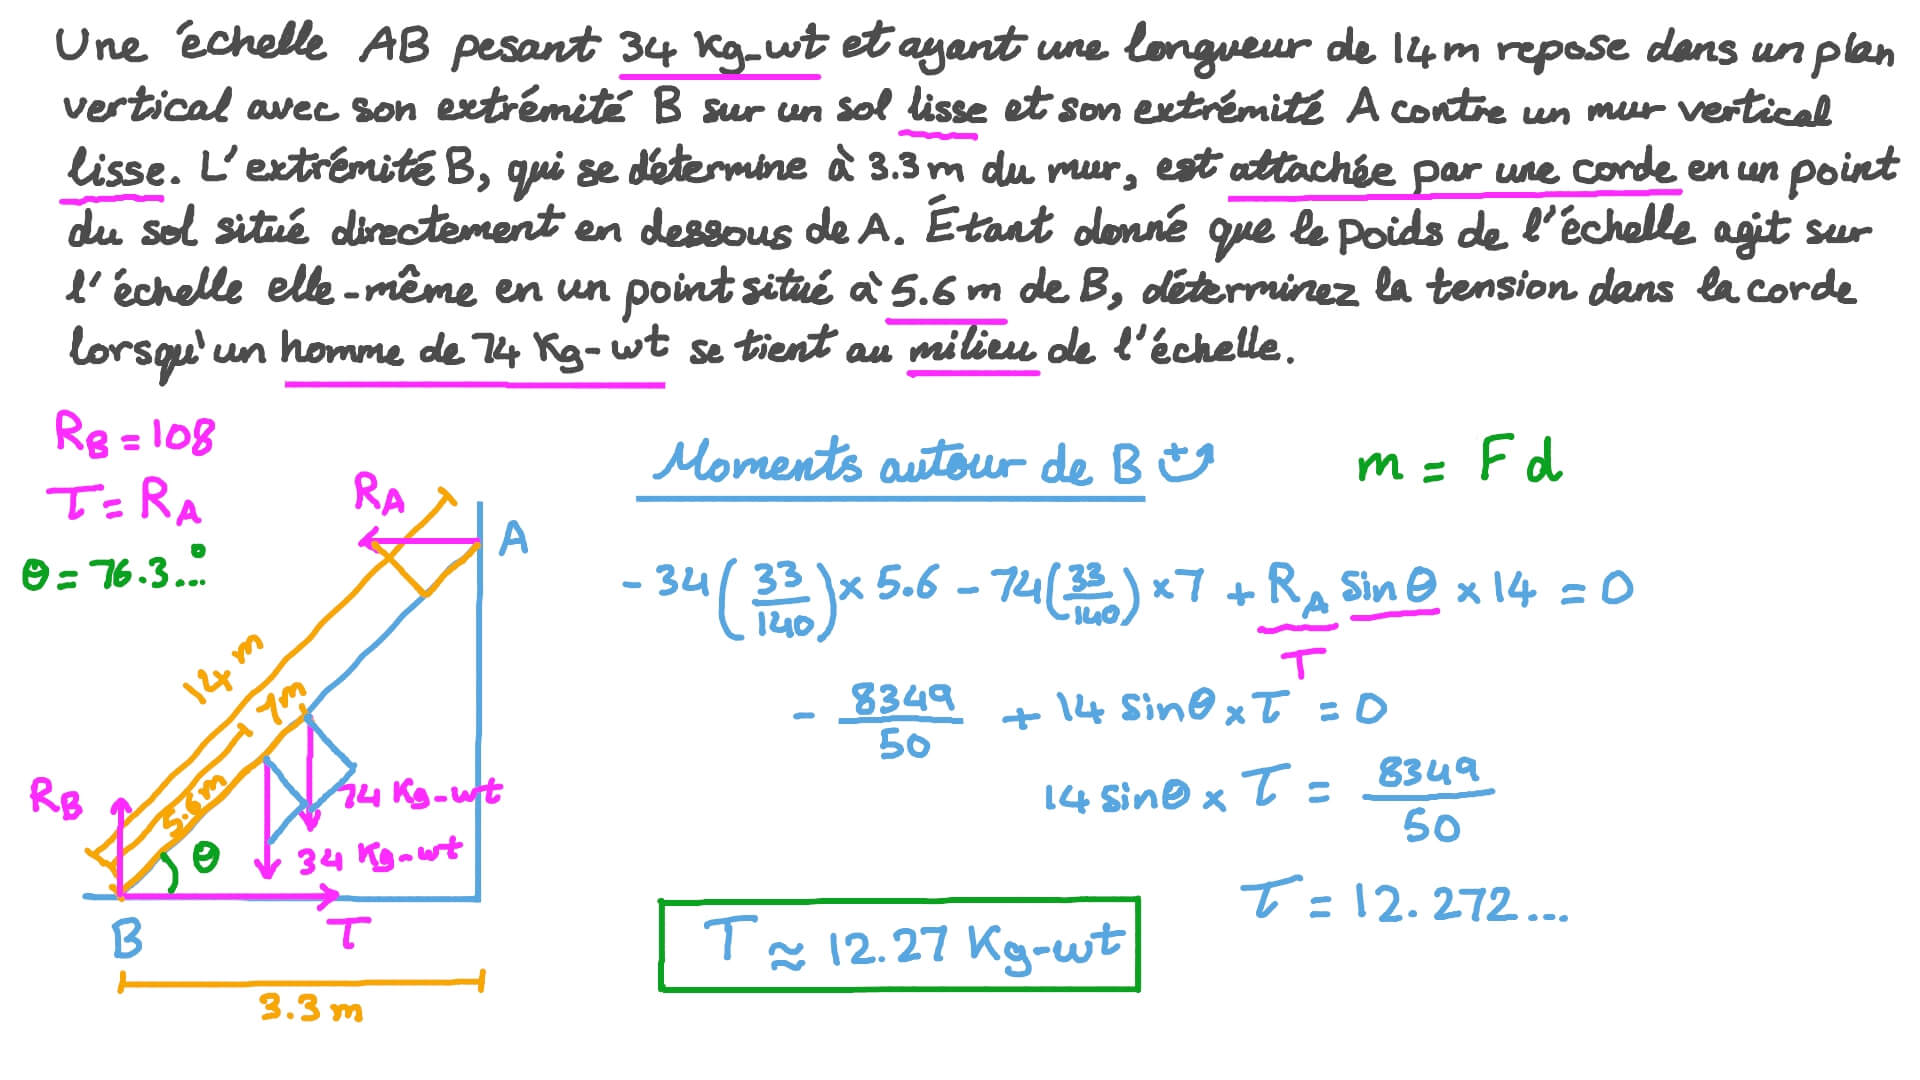 Une échelle AB pesant 34 Kg-wt et ayant une longueur de 14 m repose dans un plan
vertical avec son extrémité B sur un sol lisse et son extrémité A contre un mur vertical
lisse. L'extrémité B, qui se détermine à 3.3 m du mur, est attachée par une corde en un point
du sol situé directement en dessous de A. Étant donné que le poids de l'échelle agit sur
l'échelle elle-même en un point situé à 5.6 m de B, déterminez la tension dans la corde
lorsqu'un homme de 74 Kg-wt se tient au milieu de l'échelle.
R_B = 108
T = R_A
θ = 76.3...°
R_A
A
14 m
7m
5.6m
R_B
θ
74 Kg-wt
34 Kg-wt
B
T
3.3 m
Moments autour de B
m = Fd
-34(33/140) × 5.6 - 74(33/140) × 7 + R_A sin θ × 14 = 0
T
- 8349/50 + 14 sin θ × T = 0
14 sin θ × T = 8349/50
T = 12.272...
T ≈ 12.27 Kg-wt